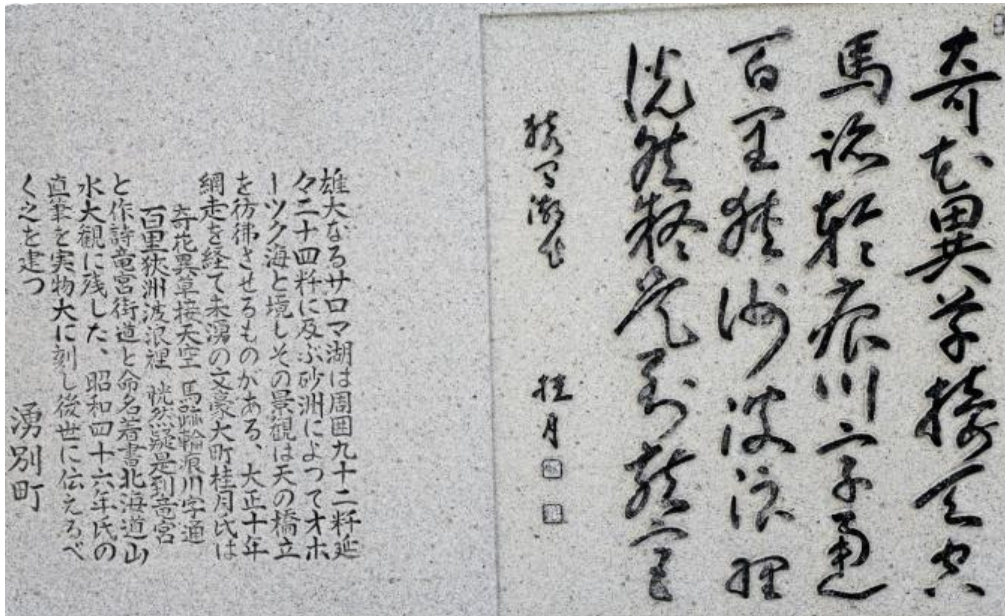 奇花異草接天空
馬跡輪痕川字通
百里狭洲波浪裡
恍然疑是到龍宮
猿間湖作 桂月
雄大なるサロマ湖は周囲九十二粁延
々二十四粁に及ぶ砂洲によつてオホ
ーツク海と境しその景観は天の橋立
を彷彿させるものがある、大正十年
網走を経て来湧の文豪大町桂月氏は
奇花異草接天空 馬跡輪痕川字通
百里狭洲波浪裡 恍然疑是到竜宮
と作詩竜宮街道と命名著書北海道山
水大観に残した、昭和四十六年氏の
真筆を実物大に刻し後世に伝えるべ
く之を建つ
湧別町